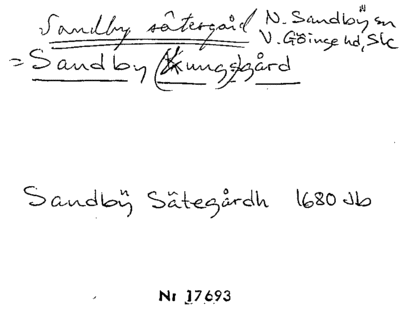 Sandby sätesgård N. Sandbÿ sn
V. Göinge hd, Slc
= Sandby (Kungs)gård
Sandbÿ Sätegårdh 1680 Jb
Nr 17693